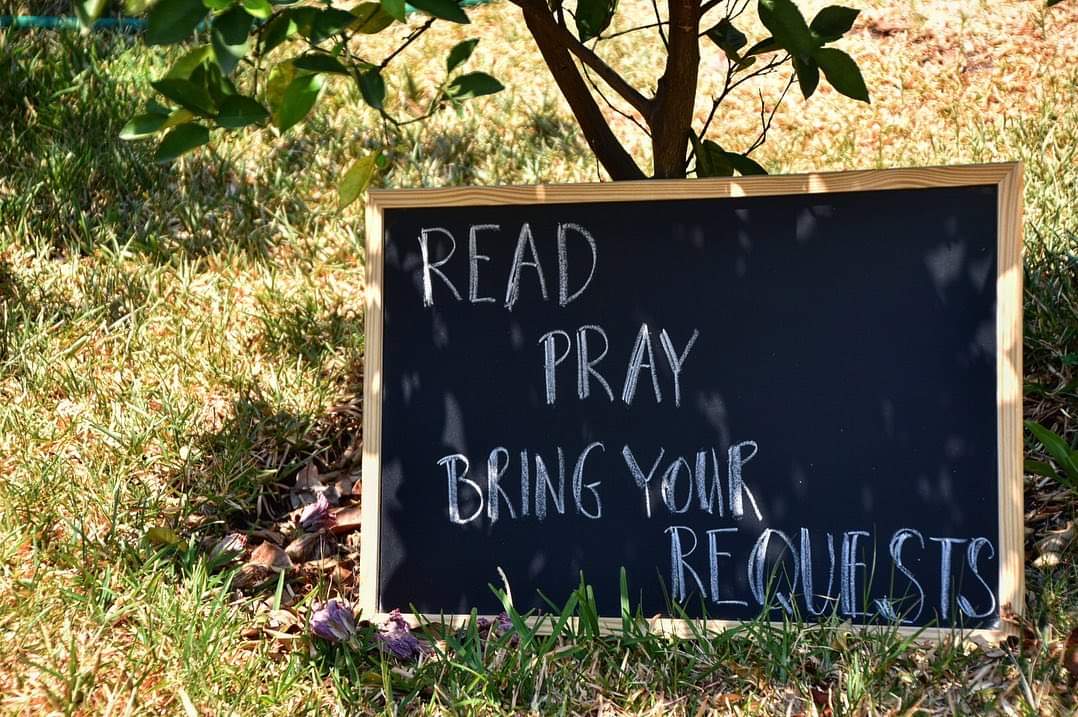 READ
PRAY
BRING YOUR
REQUESTS